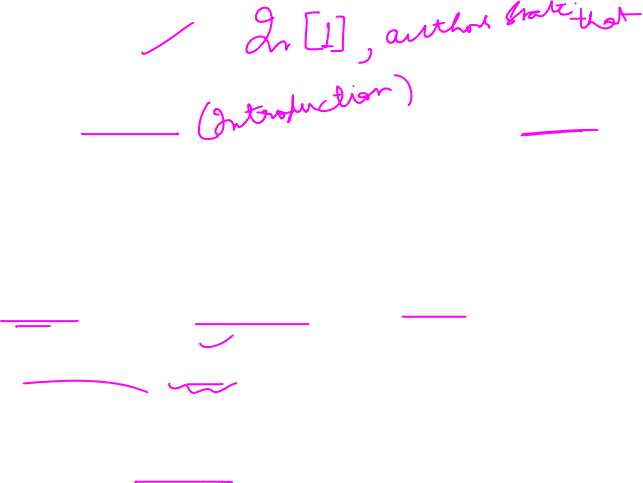 In [1], authors state that
(Introduction)